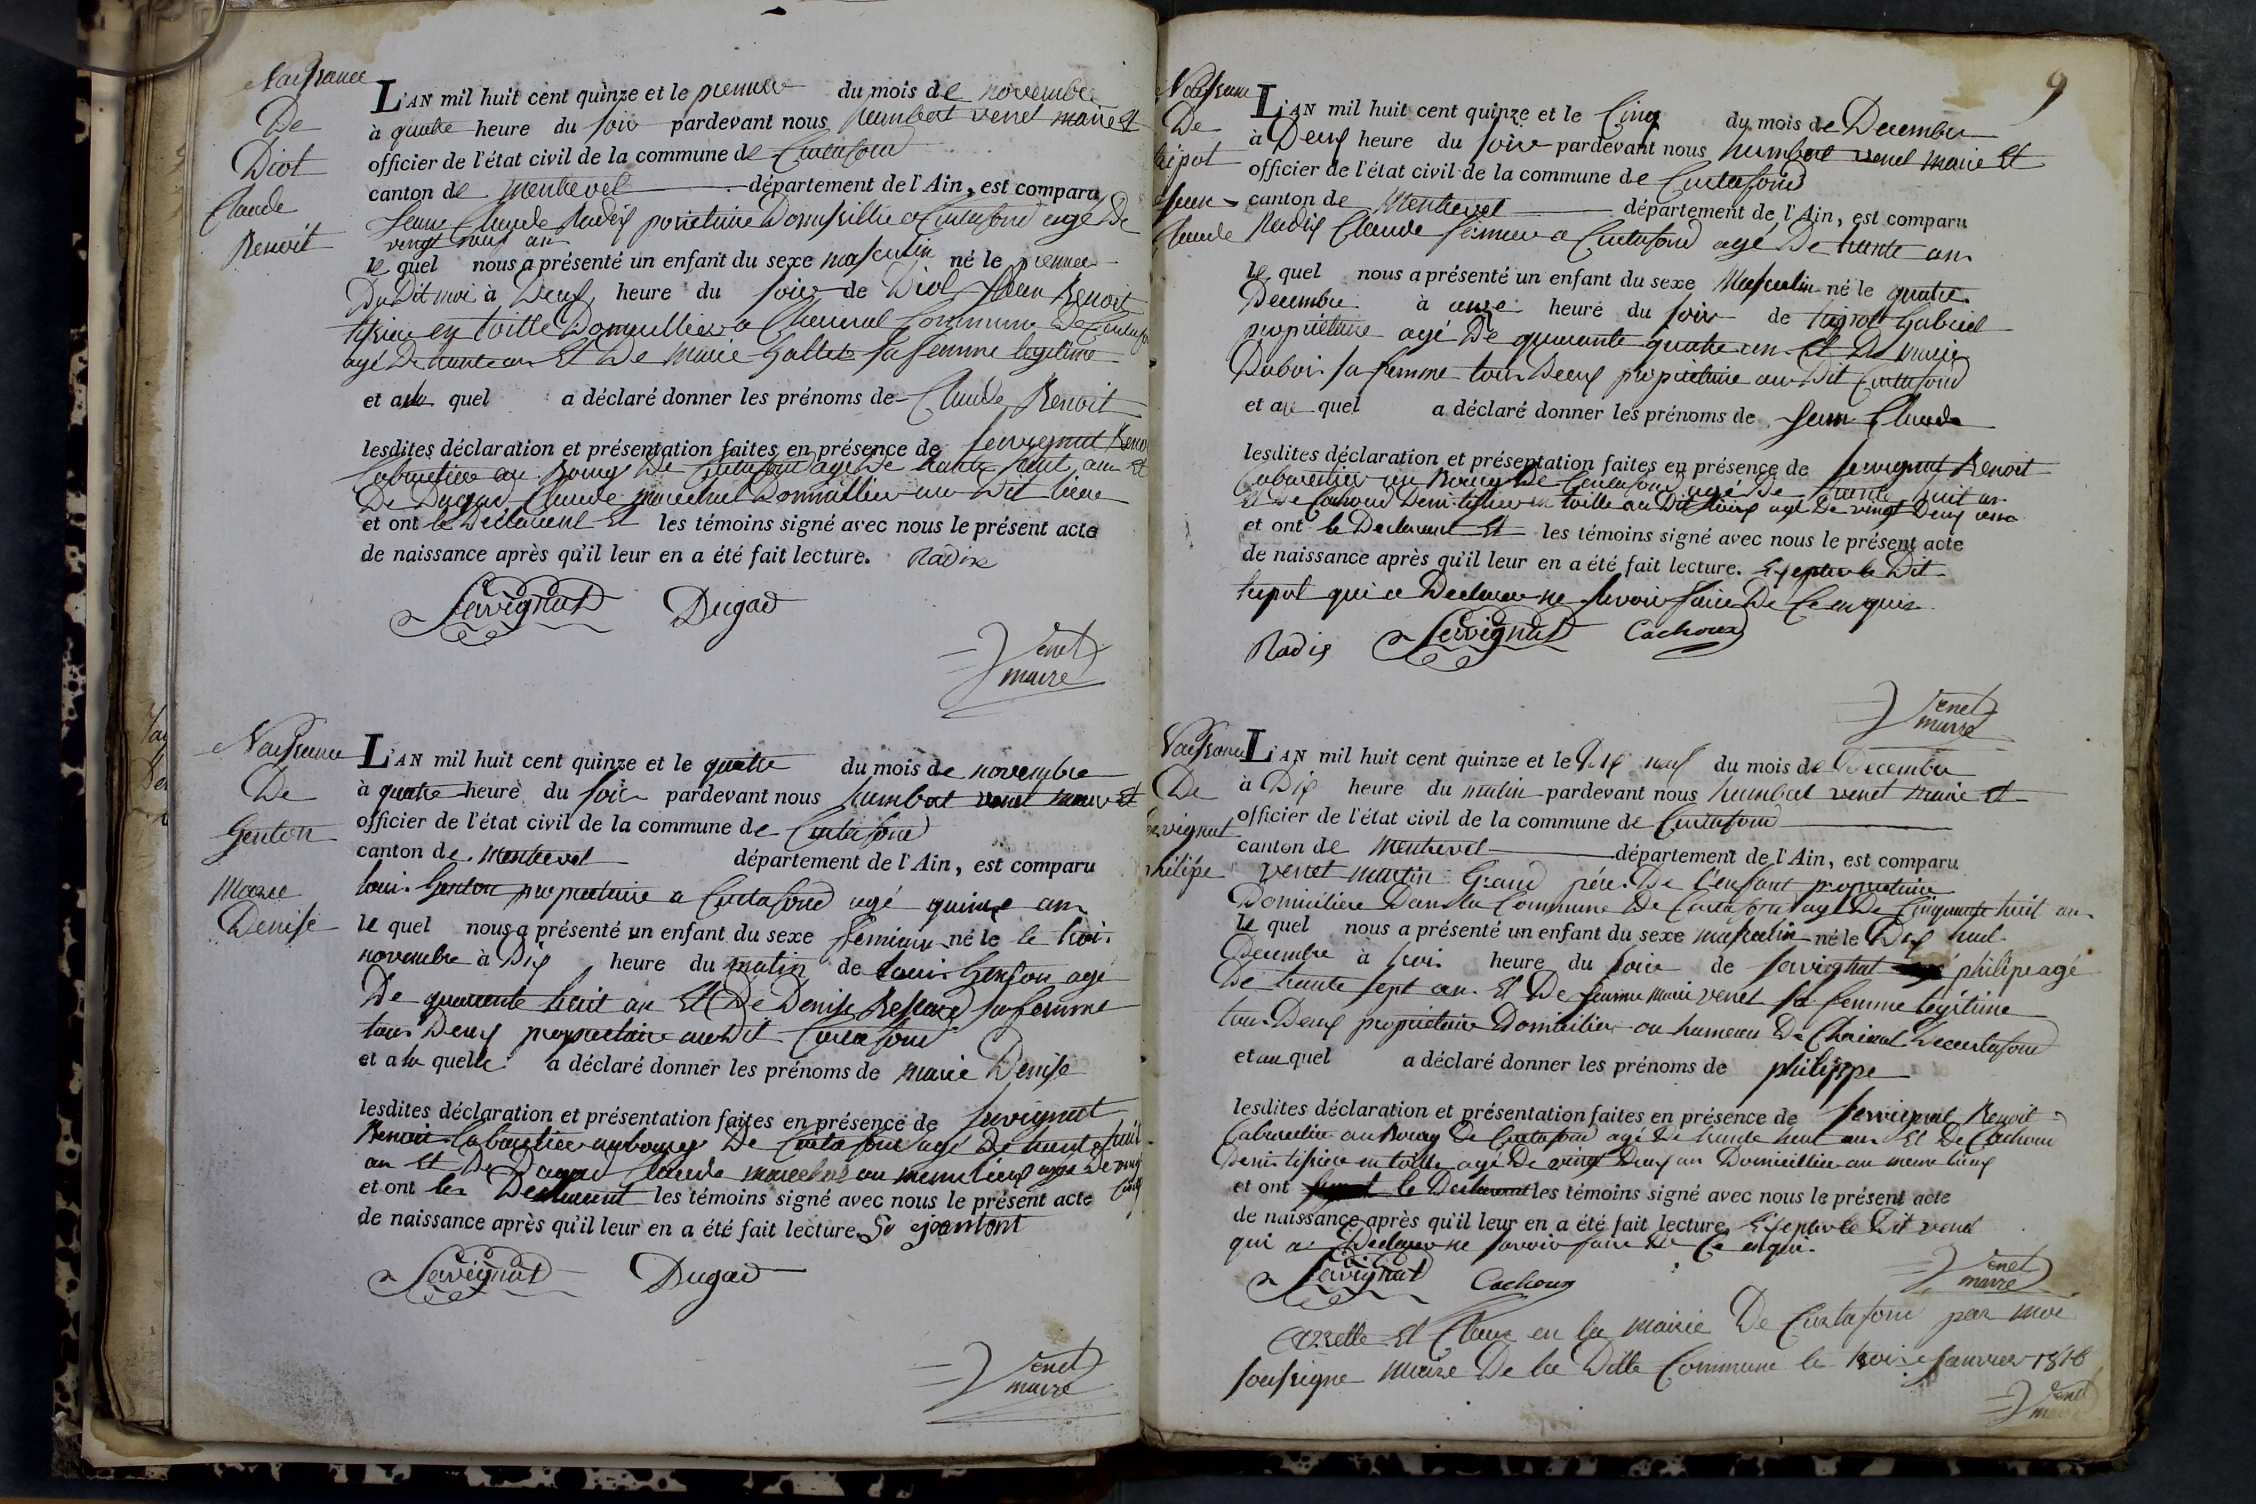 Naissance
De
Diot
Claude
Benoit
L'AN mil huit cent quinze et le premier du mois de novembre
à quatre heure du soir pardevant nous humbert venet maire et
officier de l'état civil de la commune de Curtafond
canton de montrevel département de l'Ain, est comparu
Jean Claude Radix domicillie a Curtafond agé De
vingt an
le quel nous a présenté un enfant du sexe masculin né le premier
Du Dit moi à Deux heure du soir de Diot Jean Benoit
tisier en toille Domicillier a Commune De Curtafon
agé De trente an Et De marie Gallet sa femme legitime
et au quel a déclaré donner les prénoms de Claude Benoit
lesdites déclaration et présentation faites en présence de servignat Benoi
Cabaretier au Bourg De Curtafond agé De trente huit an Et
De Dugad Claude marechal Domicillier au Dit lieux
et ont le Declarent Et les témoins signé avec nous le présent acte
de naissance après qu'il leur en a été fait lecture. Radix
Servignat Dugad
Venet
maire
Naissance
De
Genton
Marie
Denise
L'AN mil huit cent quinze et le quatre du mois de novembre
à quatre heure du soir pardevant nous humbert venet maire Et
officier de l'état civil de la commune de Curtafond
canton de montrevel département de l'Ain, est comparu
loui Genton proprietaire a Curtafond agé quinze an
le quel nous a présenté un enfant du sexe feminin né le le troi
novembre à Dix heure du matin de Loui Genton agé
De quarente huit an Et De Denise sa femme
tous Deux propriettaire au Dit Curtafond
et a la quelle a déclaré donner les prénoms de marie Denise
lesdites déclaration et présentation faites en présence de servignat
Benoit Cabaretier au bourg De Curtafond agé De trente huit
an Et De Dugad Claude marechal au meme lieux agé De vingt
cinq
et ont les Declarent les témoins signé avec nous le présent acte
de naissance après qu'il leur en a été fait lecture.
Servignat Dugad
Venet
maire
9
Naissance
De
tripot
Jean
Claude
L'AN mil huit cent quinze et le Cinq du mois de Decembre
à Deux heure du soir pardevant nous humbert venet maire Et
officier de l'état civil de la commune de Curtafond
canton de Montrevel département de l'Ain, est comparu
Radix Claude fermier a Curtafond agé De trente an
le quel nous a présenté un enfant du sexe Masculin né le quatre
Decembre à onze heure du soir de tripot Gabriel
propriétaire agé De quarante quatre an Et De marie
Duboi sa femme tous Deux propriétaire au Dit Curtafond
et au quel a déclaré donner les prénoms de Jean Claude
lesdites déclaration et présentation faites en présence de servignat Benoit
Cabaretier au Bourg De Curtafond agé De trente huit an
Et De Cachoud Deni tissier en toille au Dit lieux agé De vingt Deux ans
et ont le Declarent Et les témoins signé avec nous le présent acte
de naissance après qu'il leur en a été fait lecture. Excepter le Dit
tripot qui a Declarer ne savoir faire De Ce enquis
Radix Servignat Cachoux
Venet
maire
Naissance
De
servignat
philipe
L'AN mil huit cent quinze et le Dix neuf du mois de Decembre
à Dix heure du matin pardevant nous humbert venet maire Et
officier de l'état civil de la commune de Curtafond
canton de Montrevel département de l'Ain, est comparu
venet martin Grand père De l'enfant propriettaire
Domicilière Dans la Commune De Curtafond agé De Cinquante huit an
le quel nous a présenté un enfant du sexe masculin né le Dix huit
Decembre à troi heure du soir de servignat philipe agé
De trente sept an Et De Jeanne Marie venet sa femme legitime
tous Deux propriettaire Domicilier au hameau De Charinal De curtafond
et au quel a déclaré donner les prénoms de philippe
lesdites déclaration et présentation faites en présence de servignat Benoit
Cabaretier au Bourg De Curtafond agé De trente huit an Et De Cachoud
Deni tissier en toille agé De vingt Deux an Domicillier au meme lieux
et ont le Declarent les témoins signé avec nous le présent acte
de naissance après qu'il leur en a été fait lecture Excepter le Dit venet
qui a Declarer ne savoir faire De Ce enqui
Servignat Cachoux
Venet
maire
Arrette Et Clour en la mairie De Curtafond par moi
soussigne maire De la Ditte Commune le Janvier 1816
Venet
maire